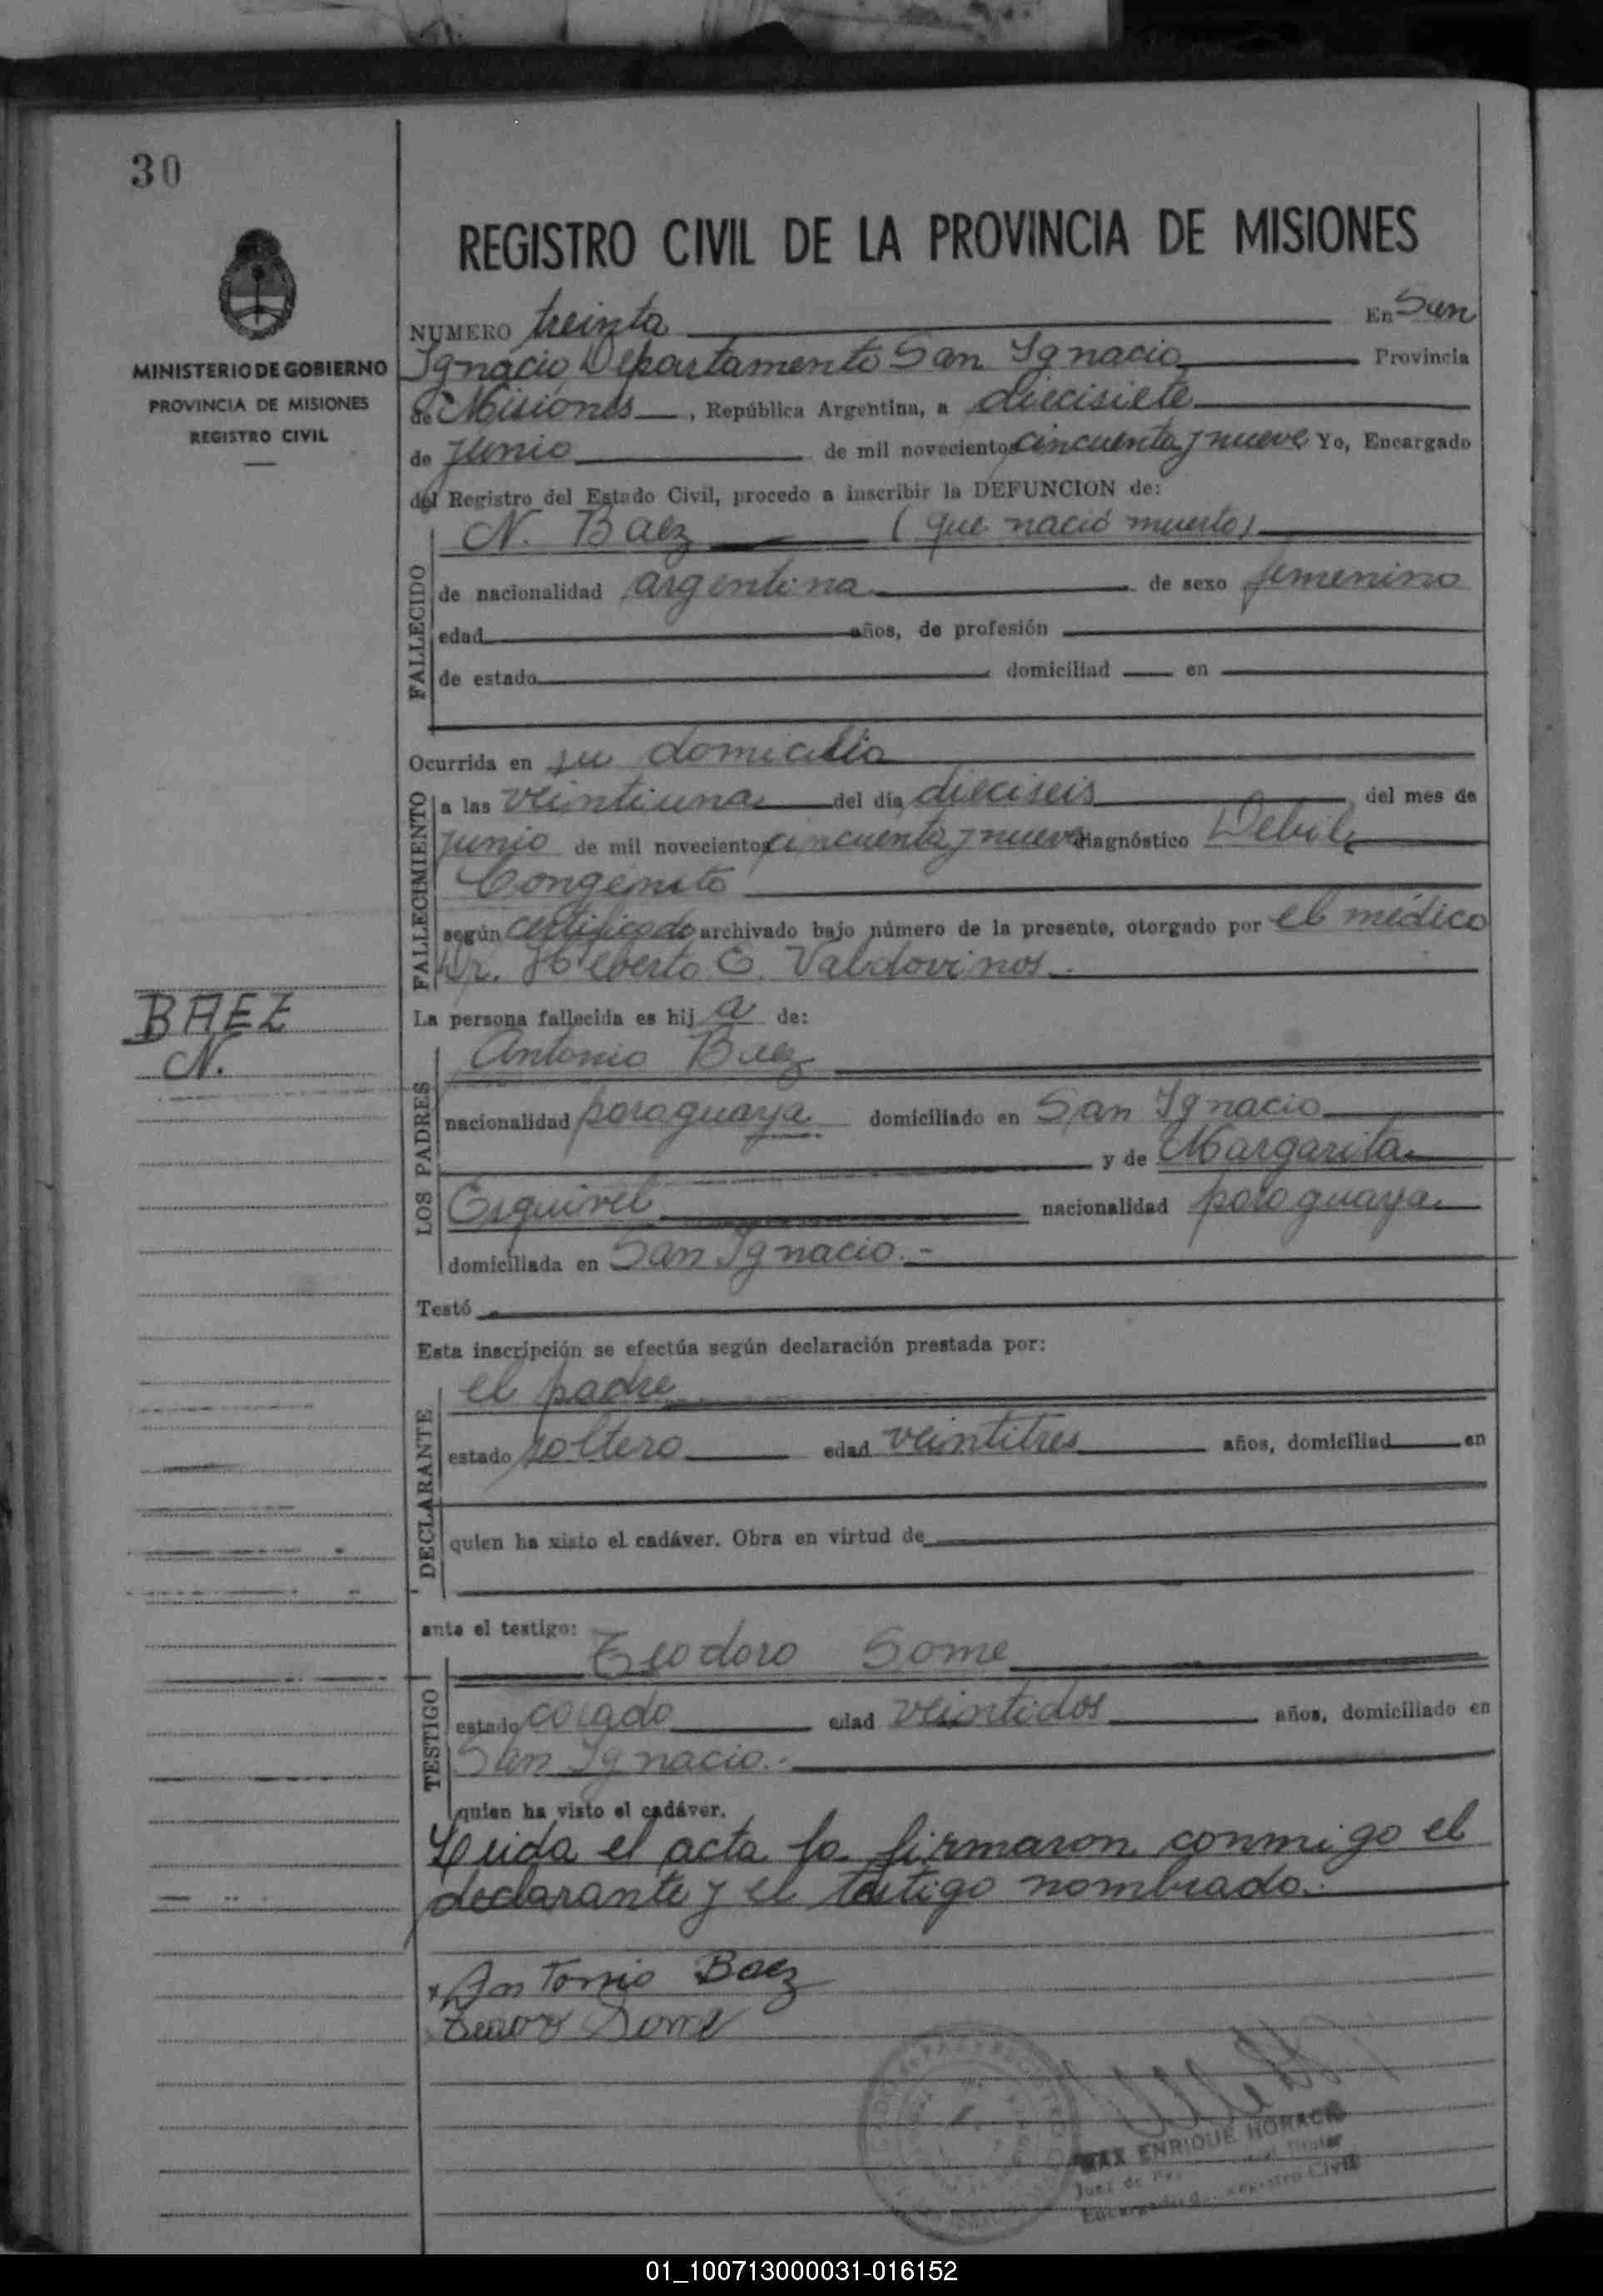 30
REGISTRO CIVIL DE LA PROVINCIA DE MISIONES
MINISTERIO DE GOBIERNO
PROVINCIA DE MISIONES
REGISTRO CIVIL
NUMERO treinta En San
Ignacio Departamento San Ignacio Provincia
de Misiones, República Argentina, a diecisiete
de junio de mil novecientos cincuenta y nueve Yo, Encargado
del Registro del Estado Civil, procedo a inscribir la DEFUNCION de:
N. Baez (que nació muerto)
FALLECIDO
de nacionalidad argentina de sexo femenino
edad años, de profesión
de estado domiciliad en
Ocurrida en su domicilio
FALLECIMIENTO
a las veintiuna del día dieciseis del mes de
junio de mil novecientos cincuenta y nueve diagnóstico Debil
Congenito
según certificado archivado bajo número de la presente, otorgado por el médico
Dr. Heberto E. Valdovinos.
BAEZ
N.
La persona fallecida es hija de:
LOS PADRES
Antonio Baez
nacionalidad paraguaya domiciliado en San Ignacio
y de Margarita
Esquivel nacionalidad paraguaya
domiciliada en San Ignacio.-
Testó
Esta inscripción se efectúa según declaración prestada por:
DECLARANTE
el padre
estado soltero edad veintitres años, domiciliad en
quien ha visto el cadáver. Obra en virtud de
ante el testigo:
TESTIGO
Teodoro Some
estado casado edad veintidos años, domiciliado en
San Ignacio.-
quien ha visto el cadáver.
Leida el acta la firmaron conmigo el
declarante y el testigo nombrado.-
Antonio Baez
Some
MAX ENRIQUE HORACIO
Juez de Titular
Encargado Registro Civil
01_100713000031-016152